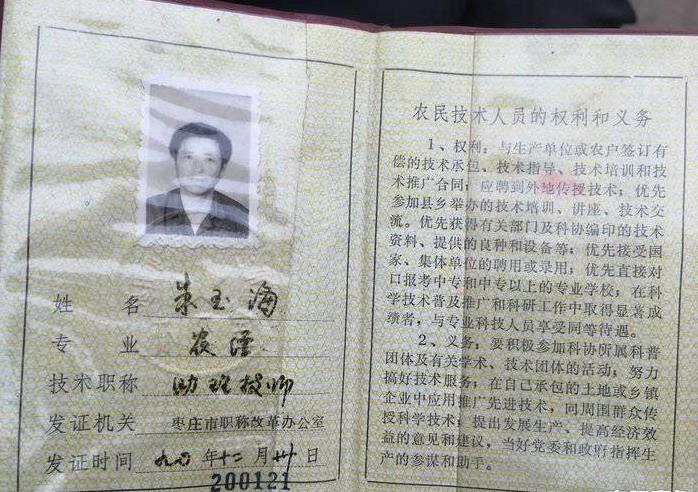 姓 名 朱玉海
专 业 农经
技术职称 助理技师
发证机关 枣庄市职称改革办公室
发证时间 九〇年十二月卅日
200121
农民技术人员的权利和义务
1、权利：与生产单位或农户签订有
偿的技术承包、技术指导、技术培训和技
术推广合同；应聘到外地传授技术；优先
参加县乡举办的技术培训、讲座、技术交
流。优先获得有关部门及科协编印的技术
资料、提供的良种和设备等；优先接受国
家、集体单位的聘用或录用；优先直接对
口报考中专和中专以上的专业学校；在科
学技术普及推广和科研工作中取得显著成
绩者，与专业科技人员享受同等待遇。
2、义务：要积极参加科协所属科普
团体及有关学术、技术团体的活动；努力
搞好技术服务；在自己承包的土地或乡镇
企业中应用推广先进技术，向周围群众传
授科学技术；提出发展生产、提高经济效
益的意见和建议，当好党委和政府指挥生
产的参谋和助手。